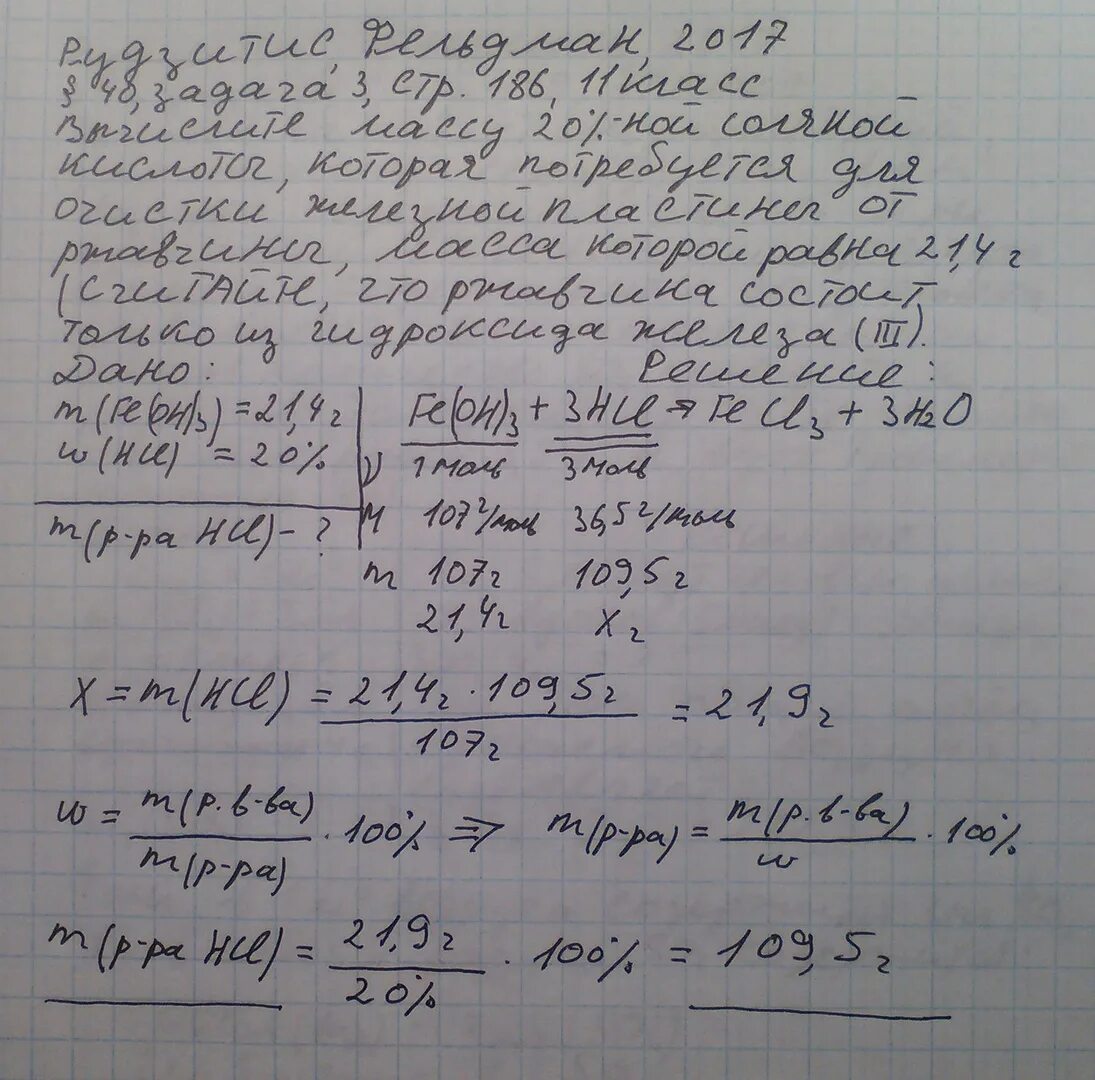 Рудзитис, Фельдман, 2017
§ 40, задача 3, стр. 186, 11 класс
Вычислите массу 20%-ной соляной
кислоты, которая потребуется для
очистки железной пластины от
ржавчины, масса которой равна 21,4 г
(считайте, что ржавчина состоит
только из гидроксида железа (III).
Дано: Решение:
m(Fe(OH)3) = 21,4 г Fe(OH)3 + 3HCl → FeCl3 + 3H2O
w(HCl) = 20% ν 1 моль 3 моль
m(р-ра HCl) - ? M 107 г/моль 36,5 г/моль
m 107 г 109,5 г
21,4 г X г
X = m(HCl) = 21,4 г · 109,5 г / 107 г = 21,9 г
w = m(р.в-ва) / m(р-ра) · 100% ⇒ m(р-ра) = m(р.в-ва) / w · 100%
m(р-ра HCl) = 21,9 г / 20% · 100% = 109,5 г